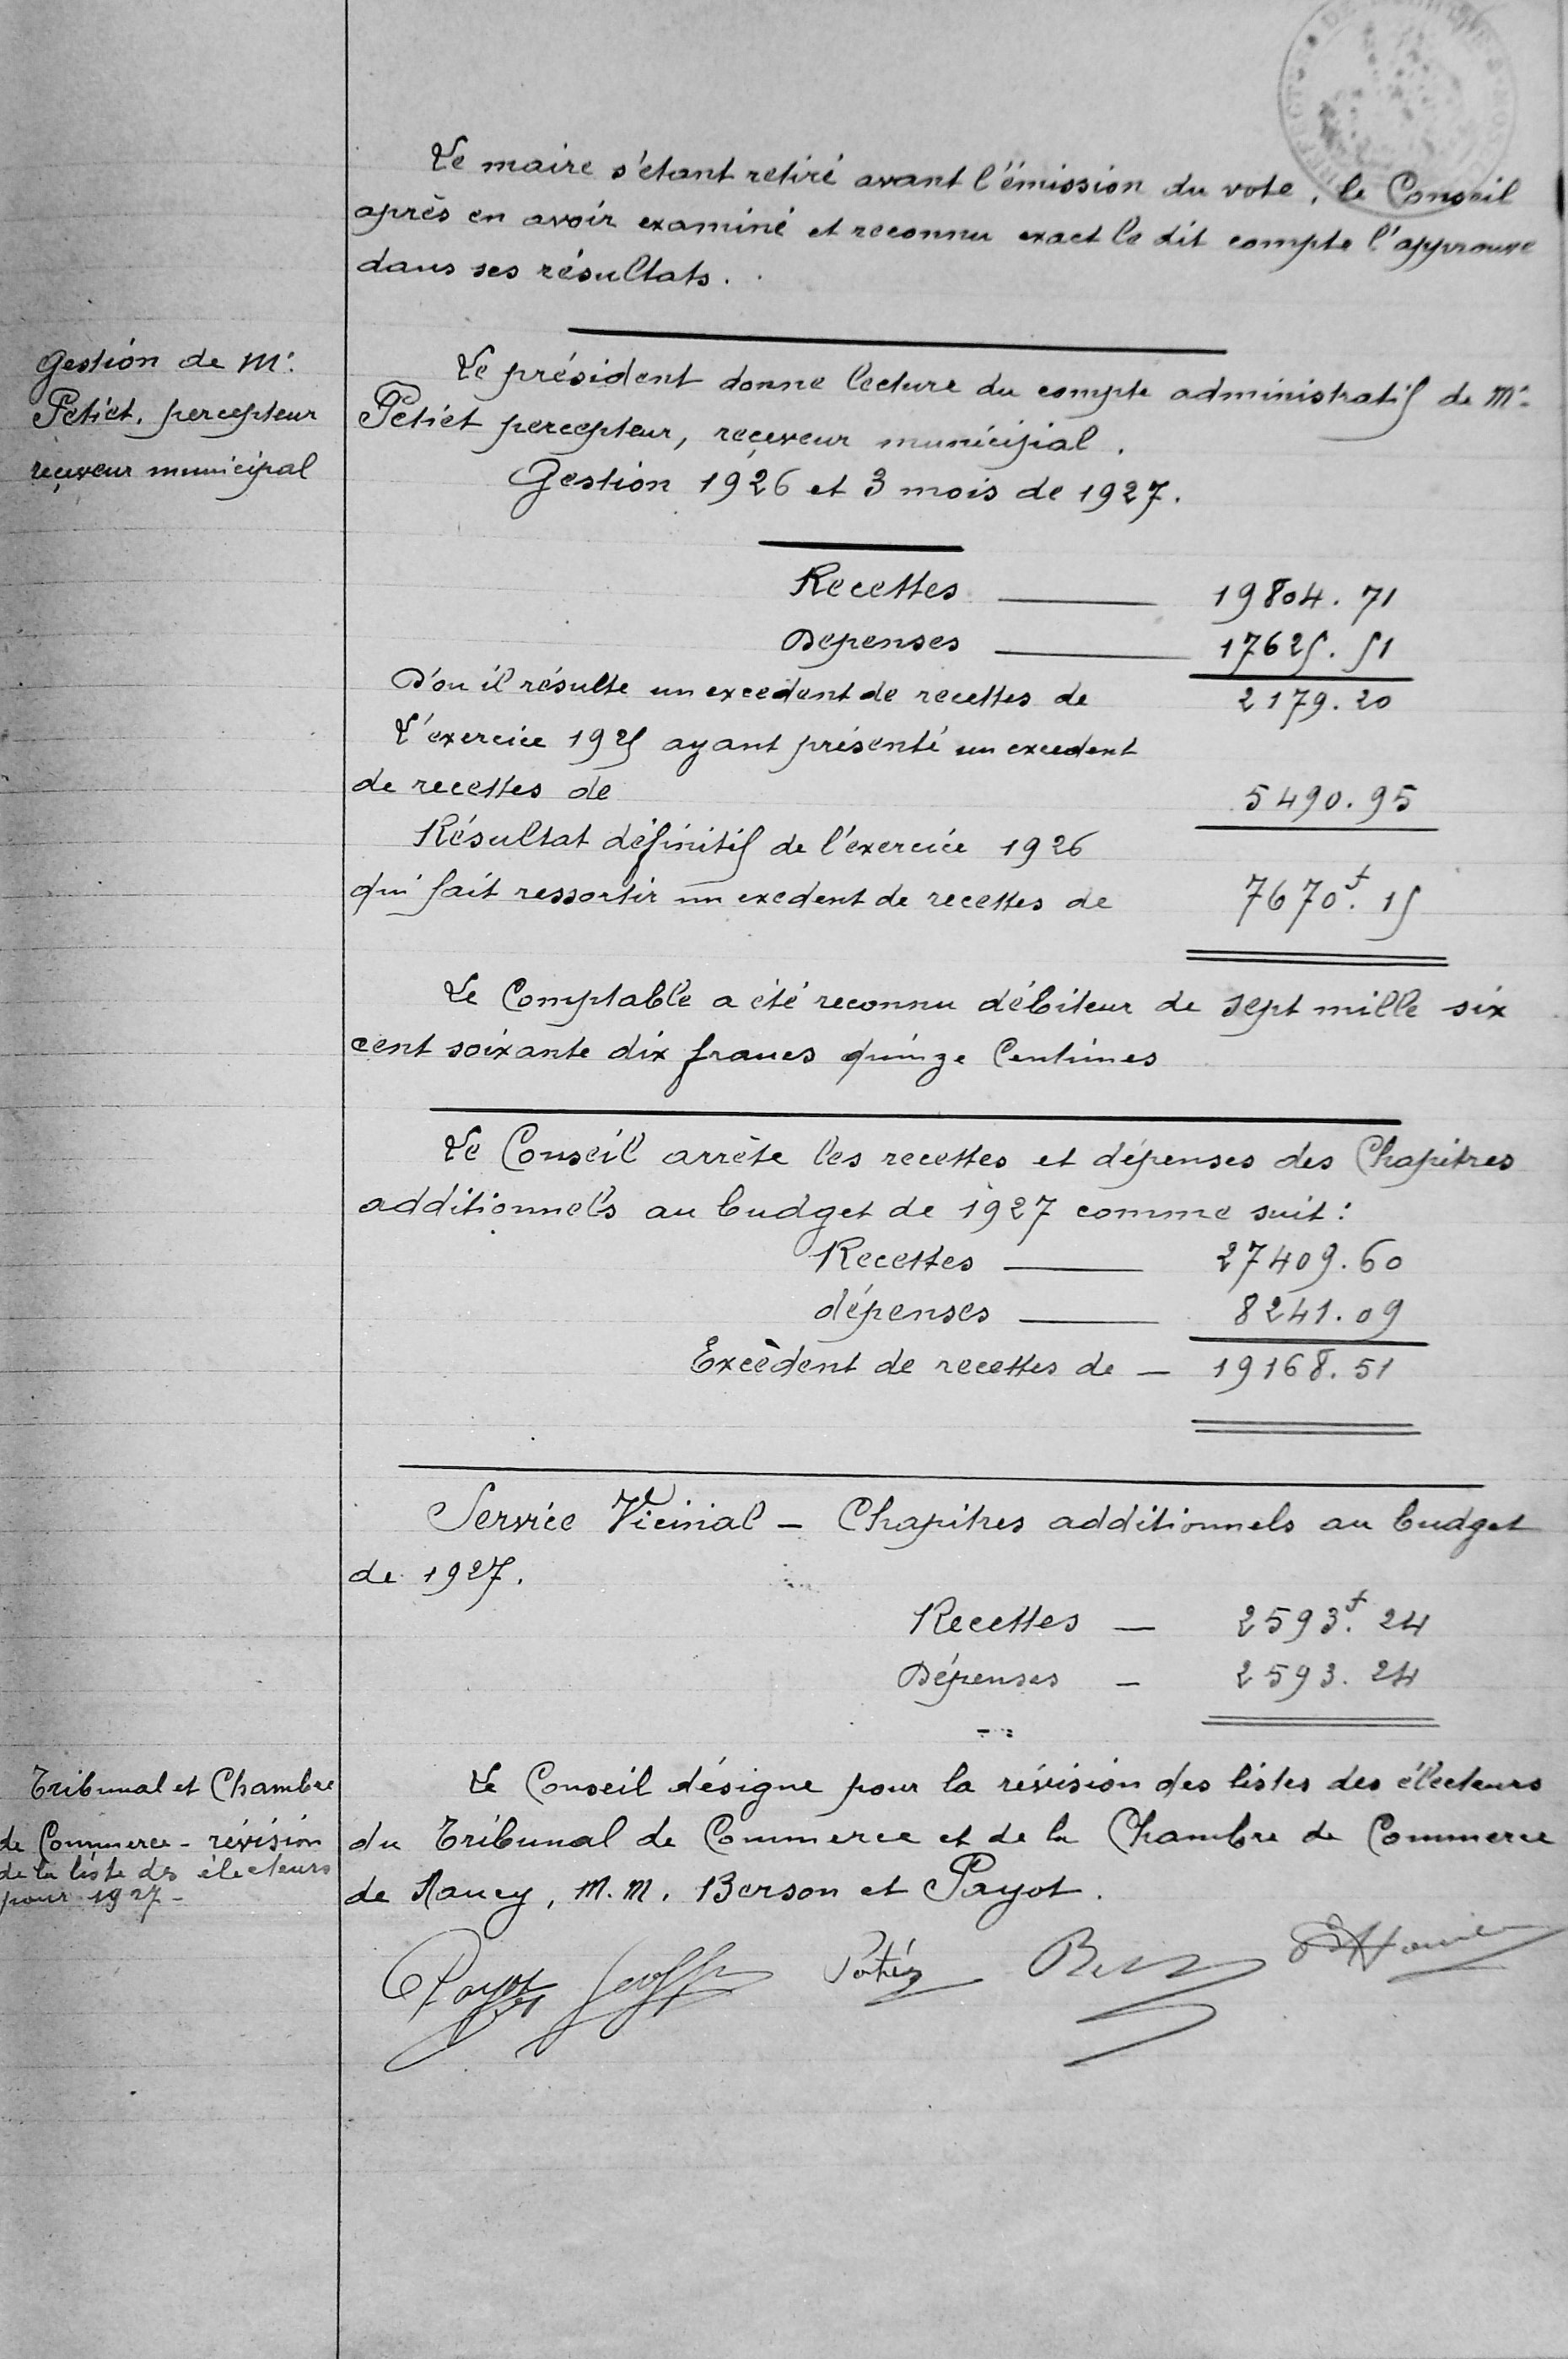 Le maire s'étant retiré avant l'émission du vote, le Conseil
après en avoir examiné et reconnu exact le dit compte l'approuve
dans ses résultats.
Gestion de Mr.
Petiet, percepteur
reçeveur municipal
Le président donne lecture du compte administratif de Mr.
Petiet percepteur, reçeveur municipal.
Gestion 1926 et 3 mois de 1927.
Recettes — 19804.71
Depenses — 17625.51
D'ou il résulte un excedent de recettes de 2179.20
L'exercice 1925 ayant présenté un excedent
de recettes de 5490.95
Résultat définitif de l'exercice 1926
qui fait ressortir un exedent de recettes de 7670f.15
Le Comptable a été reconnu débiteur de sept mille six
cent soixante dix francs quinze Centimes
Le Conseil arrète les recettes et dépenses des Chapitres
additionnels au budget de 1927 comme suit :
Recettes — 27409.60
dépenses — 8241.09
Excèdent de recettes de — 19168.51
Service Vicinal — Chapitres additionnels au budget
de 1927.
Recettes — 2593f.24
Dépenses — 2593.24
Tribunal et Chambre
de Commerce - révision
de la liste des électeurs
pour 1927 -
Le Conseil désigne pour la révision des listes des électeurs
du Tribunal de Commerce et de la Chambre de Commerce
de Nancy, M.M. Berson et Payot.
Payot